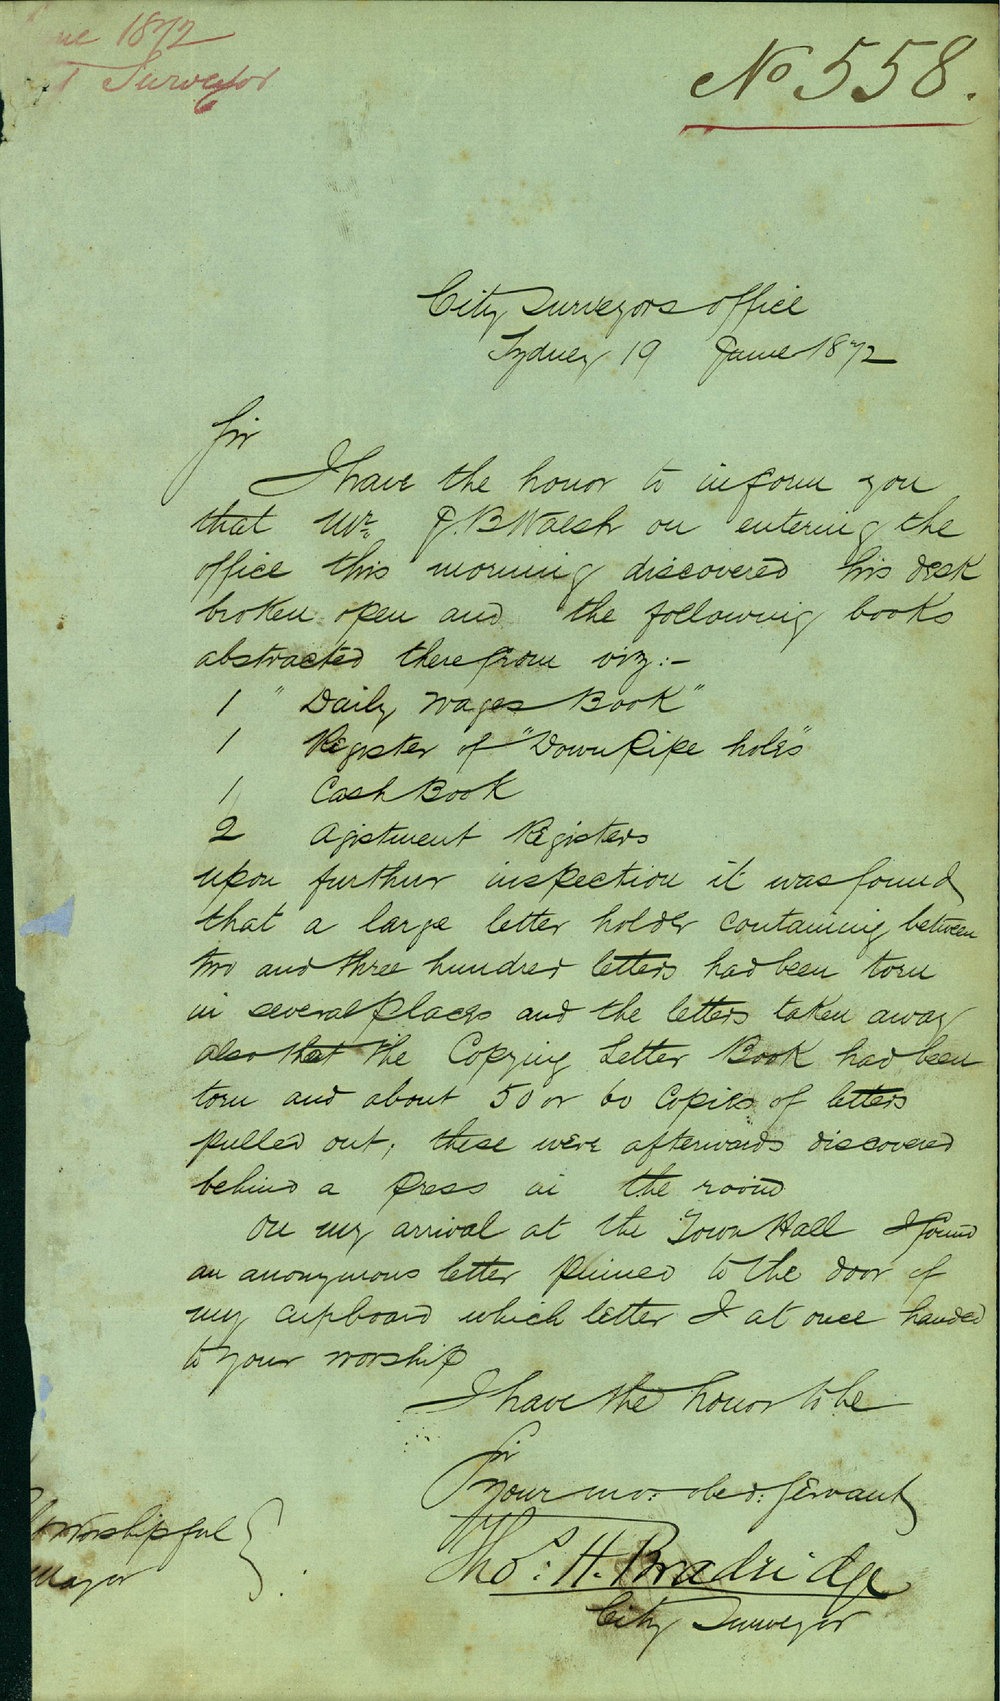 ne 1872
t Surveyor
No 558.
City Surveyors Office
Sydney 19 June 1872
Sir
I have the honor to inform you
that Mr. J. B Walsh on entering the
office this morning discovered his desk
broken open and the following books
abstracted therefrom viz:-
1 " Daily Wages Book"
1 Register of "Down Pipe holes"
1 Cash Book
2 Agistment Registers
upon further inspection it was found
that a large letter holder containing between
two and three hundred letters had been torn
in several places and the letters taken away
also that the Copying Letter Book had been
torn and about 50 or 60 Copies of letters
pulled out, these were afterwards discovered
behind a press in the room
On my arrival at the Town Hall I found
an anonymous letter pinned to the door of
my cupboard which letter I at once handed
to your worship
I have the honor to be
Sir
Your mo: obed: Servant
Thos. H. Bradridge
City Surveyor
Worshipful
Mayor